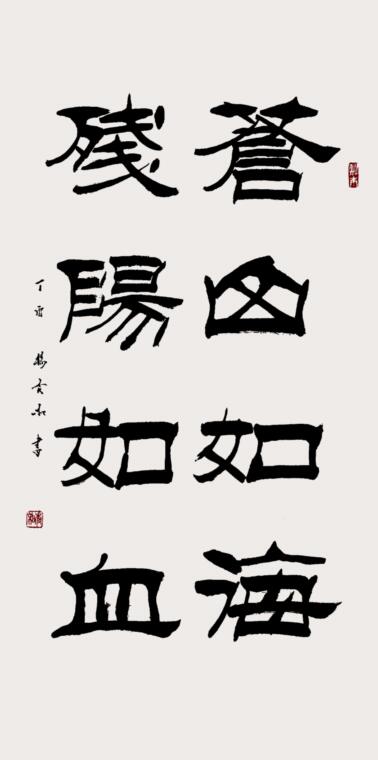 蒼山如海
殘陽如血
丁酉 書